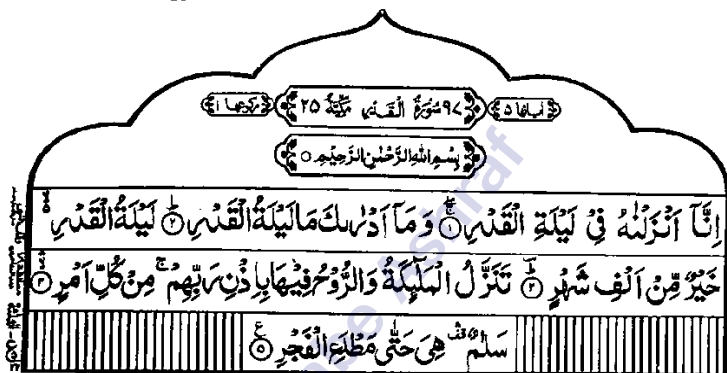 اٰیاتھا ۵ ۹۷ سُوْرَةُ الْقَدْرِ مَكِّیَّةٌ ۲۵ رکوعھا ۱
بِسْمِ اللهِ الرَّحْمٰنِ الرَّحِیْمِ ○
اِنَّاۤ اَنْزَلْنٰهُ فِیْ لَیْلَةِ الْقَدْرِ ۚ﴿۱﴾ وَ مَاۤ اَدْرٰىكَ مَا لَیْلَةُ الْقَدْرِ ؕ﴿۲﴾ لَیْلَةُ الْقَدْرِ
خَیْرٌ مِّنْ اَلْفِ شَهْرٍ ؕ﴿۳﴾ تَنَزَّلُ الْمَلٰٓىِٕكَةُ وَ الرُّوْحُ فِیْهَا بِاِذْنِ رَبِّهِمْ ۚ مِنْ كُلِّ اَمْرٍ ﴿۴﴾
سَلٰمٌ ۛ هِیَ حَتّٰى مَطْلَعِ الْفَجْرِ ﴿۵﴾ ع